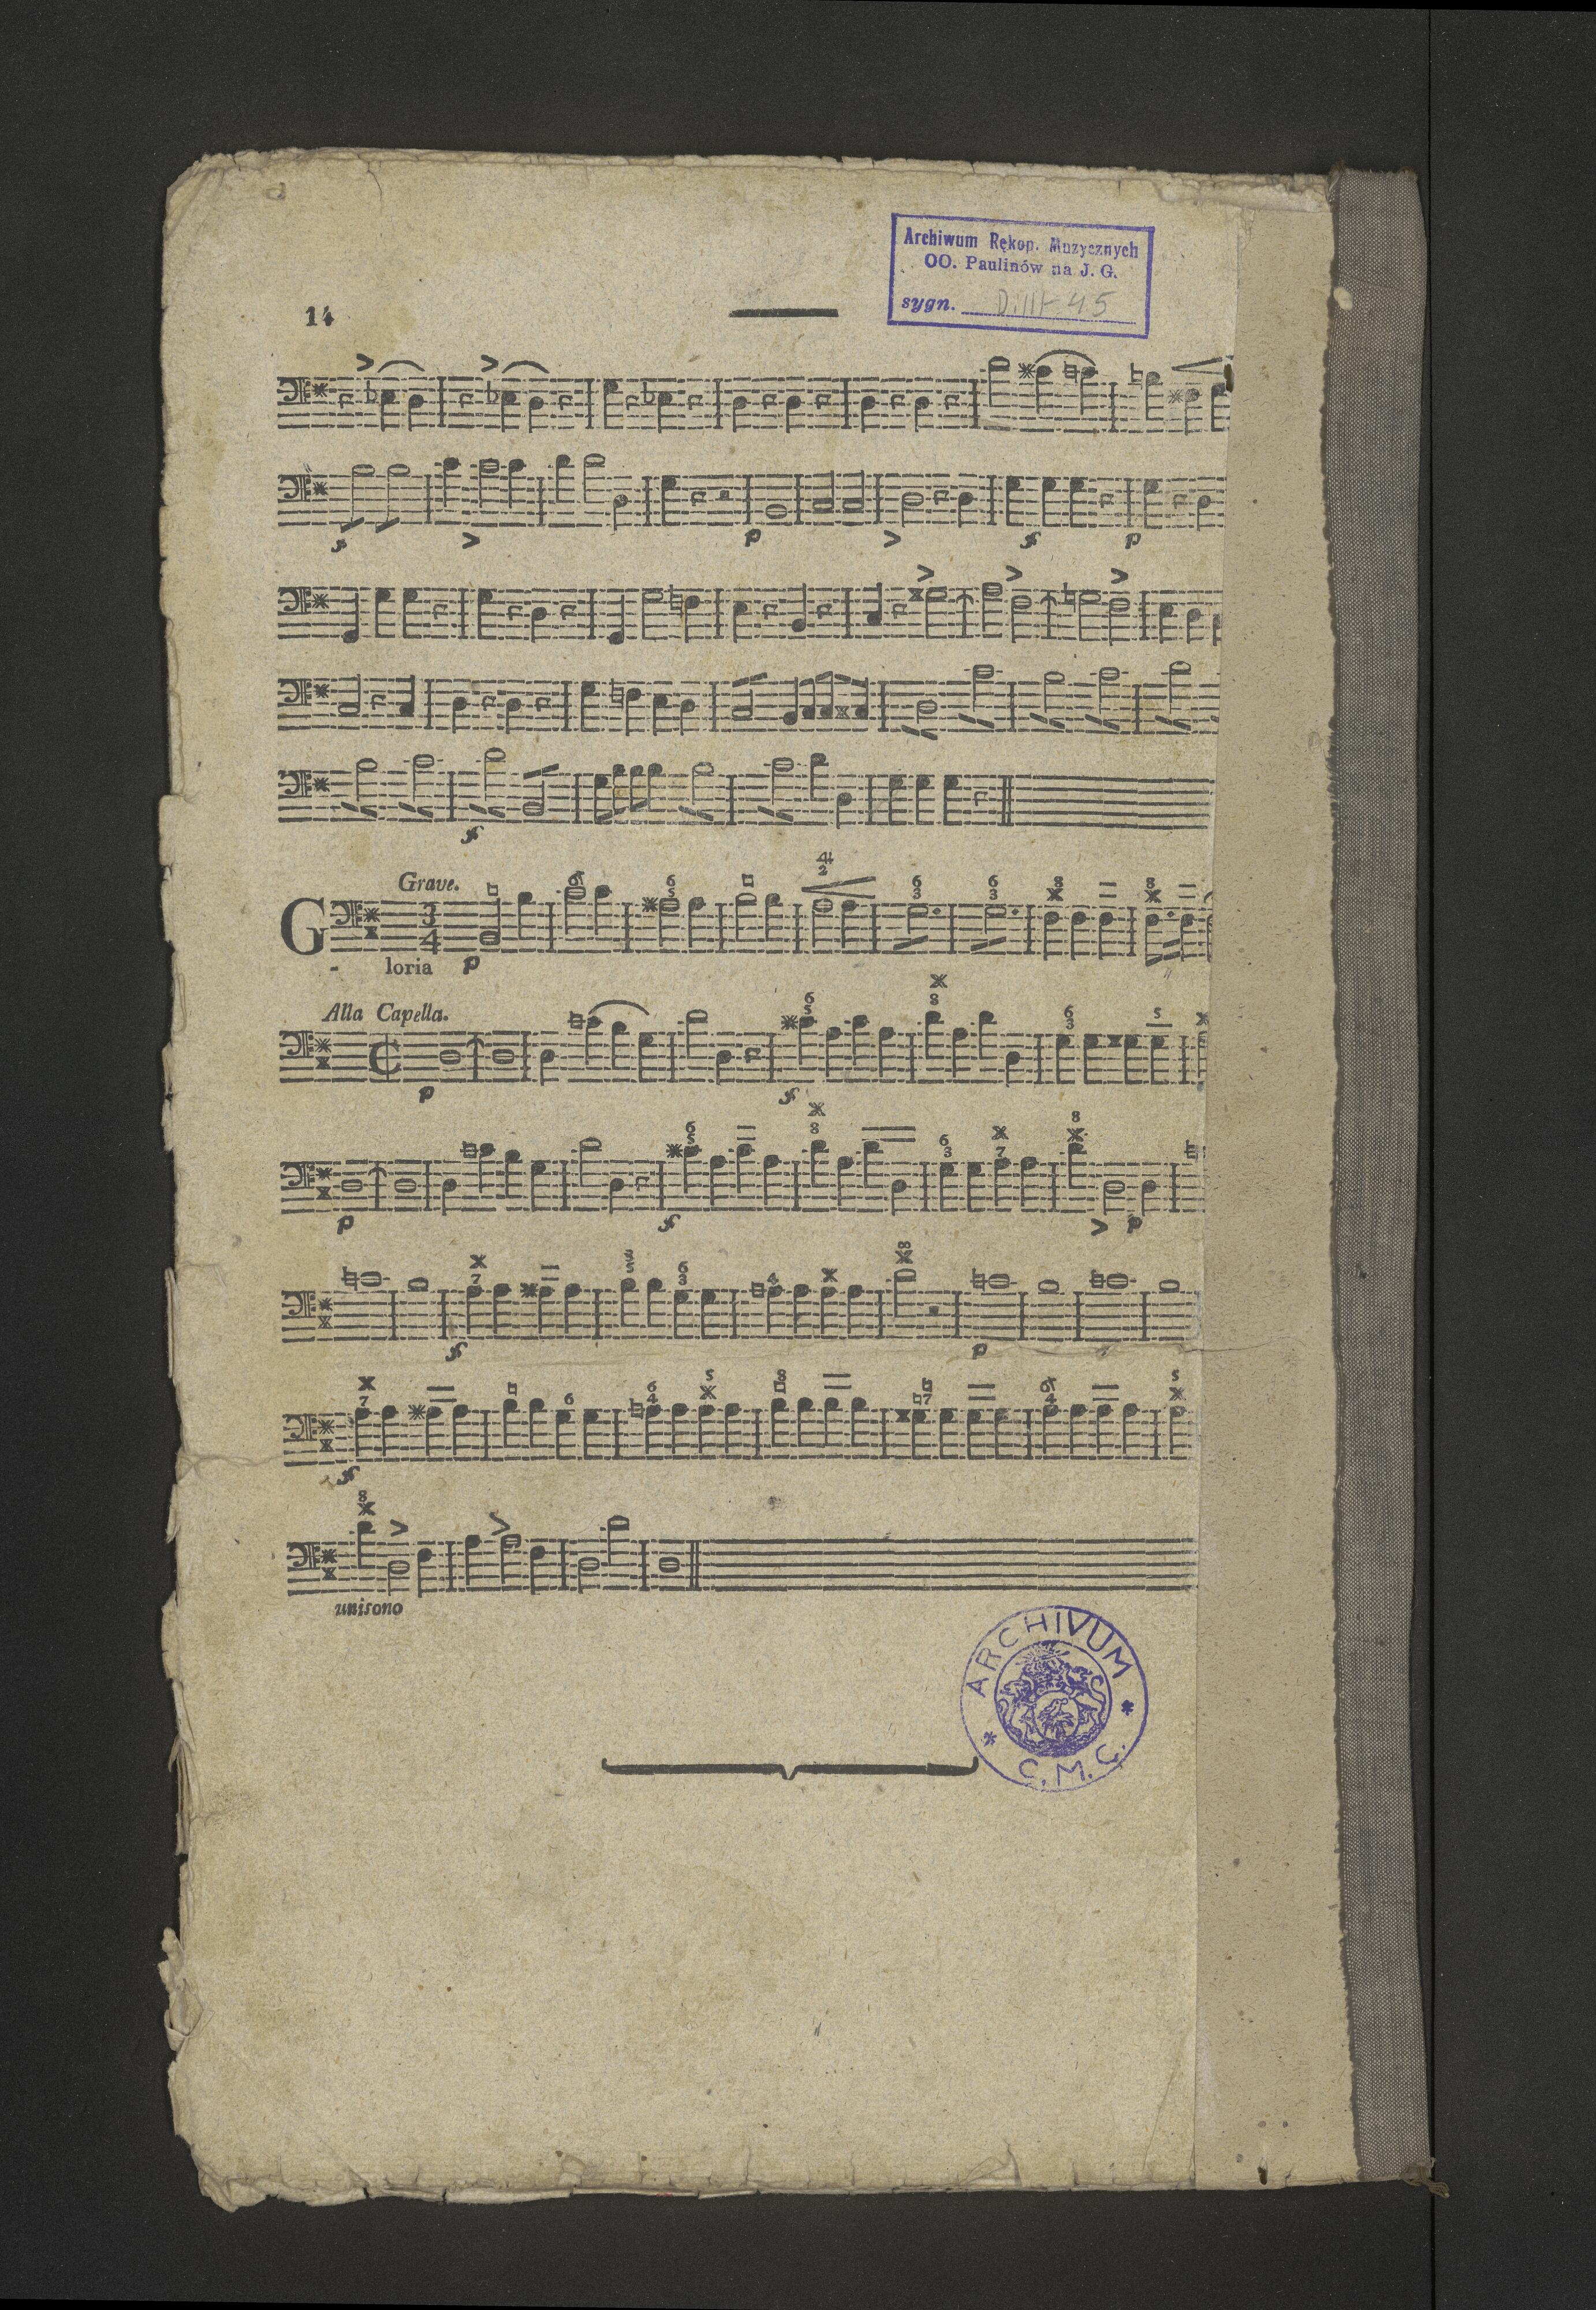 Archiwum Rękop. Muzycznych
OO. Paulinów na J. G.
sygn. D.III-45
14
Grave.
G
- loria
Alla Capella.
unisono
ARCHIVUM
* C.M.C. *